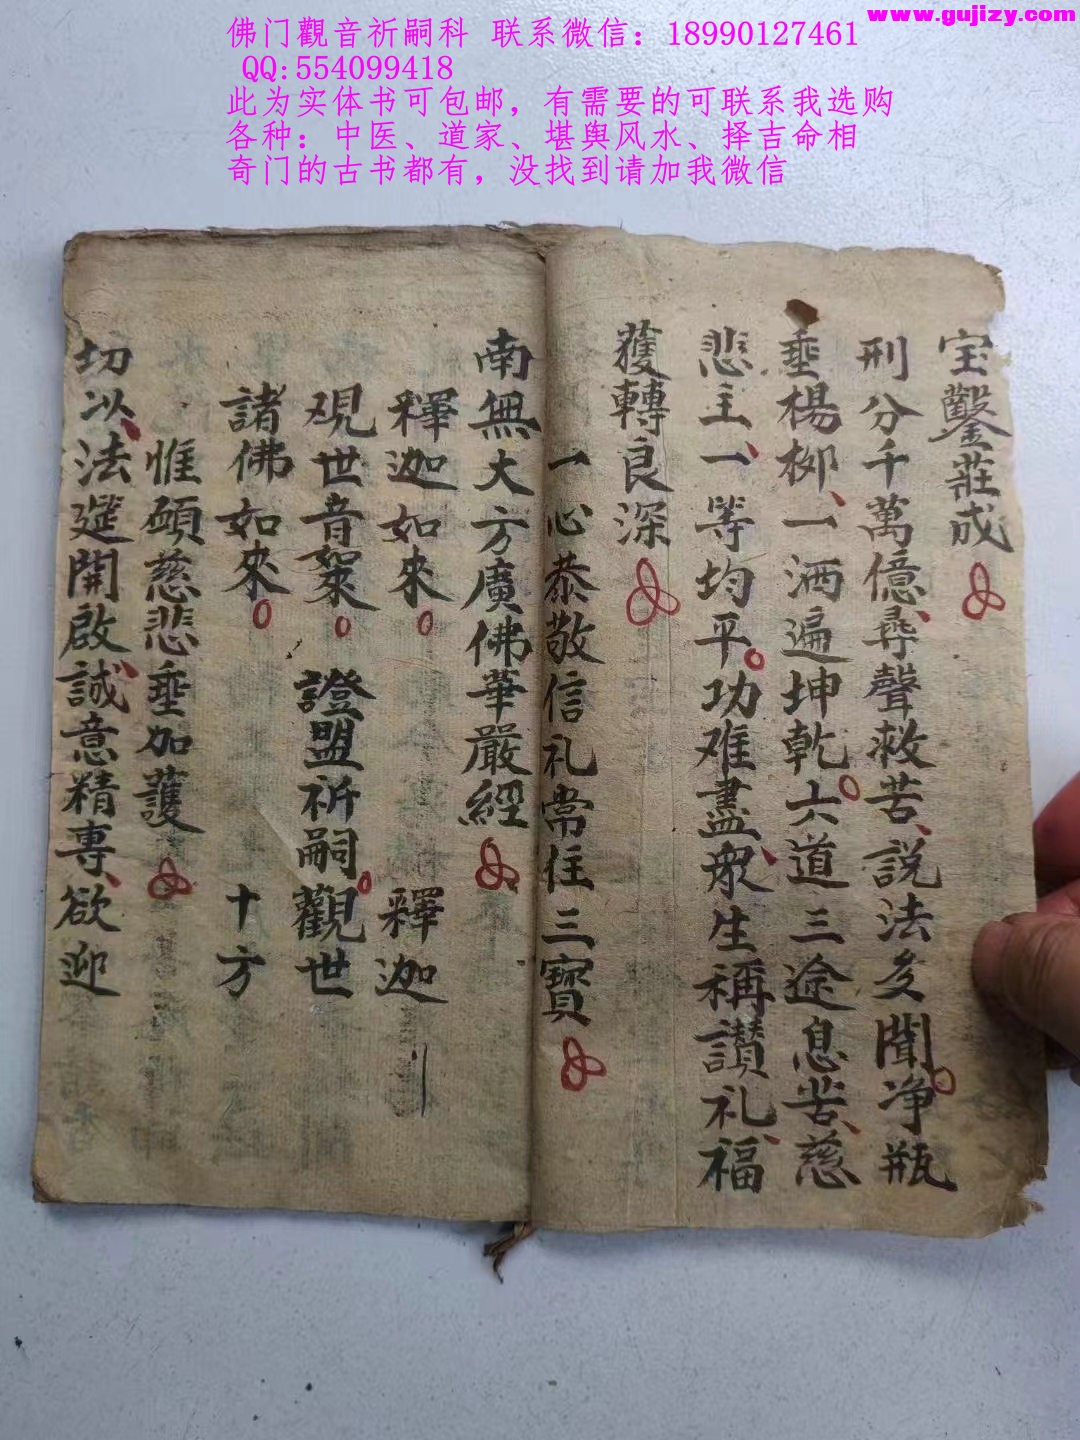 www.gujizy.com
佛门觀音祈嗣科 联系微信：18990127461
QQ:554099418
此为实体书可包邮，有需要的可联系我选购
各种：中医、道家、堪舆风水、择吉命相
奇门的古书都有，没找到请加我微信
宝鑿莊成
刑分千萬億、尋聲救苦、説法多聞。净瓶
垂楊柳、一洒遍坤乾。六道三途息苦、慈
悲主、一等均平。功难盡、衆生稱讃礼、福
獲轉良深
一心恭敬信礼常住三寳
南無大方廣佛華嚴經
釋迦如來。 釋迦
观世音如來。 證盟祈嗣。觀世
諸佛如來。 十方
惟願慈悲垂加護
切以、法筵開啟、誠意精專、欲迎